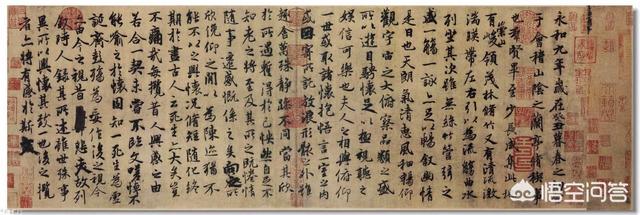 永和九年歲在癸丑暮春之初會
于會稽山陰之蘭亭脩稧事
也羣賢畢至少長咸集此地
有崇山峻領茂林脩竹又有清流激
湍暎帶左右引以為流觴曲水
列坐其次雖無絲竹管弦之
盛一觴一詠亦足以暢敘幽情
是日也天朗氣清惠風和暢仰
觀宇宙之大俯察品類之盛
所以遊目騁懷足以極視聽之
娛信可樂也夫人之相與俯仰
一世或取諸懷抱悟言一室之內
或因寄所託放浪形骸之外雖
趣舍萬殊靜躁不同當其欣
於所遇蹔得於己怏然自足不
知老之將至及其所之既惓情
隨事遷感慨係之矣向之所
欣俛仰之閒以為陳迹猶不
能不以之興懷況脩短隨化終
期於盡古人云死生亦大矣豈
不痛哉每攬昔人興感之由
若合一契未嘗不臨文嗟悼不
能喻之於懷固知一死生為虛
誕齊彭殤為妄作後之視今
亦由今之視昔悲夫故列
敘時人錄其所述雖世殊事
異所以興懷其致一也後之攬
者亦將有感於斯文
悟空问答